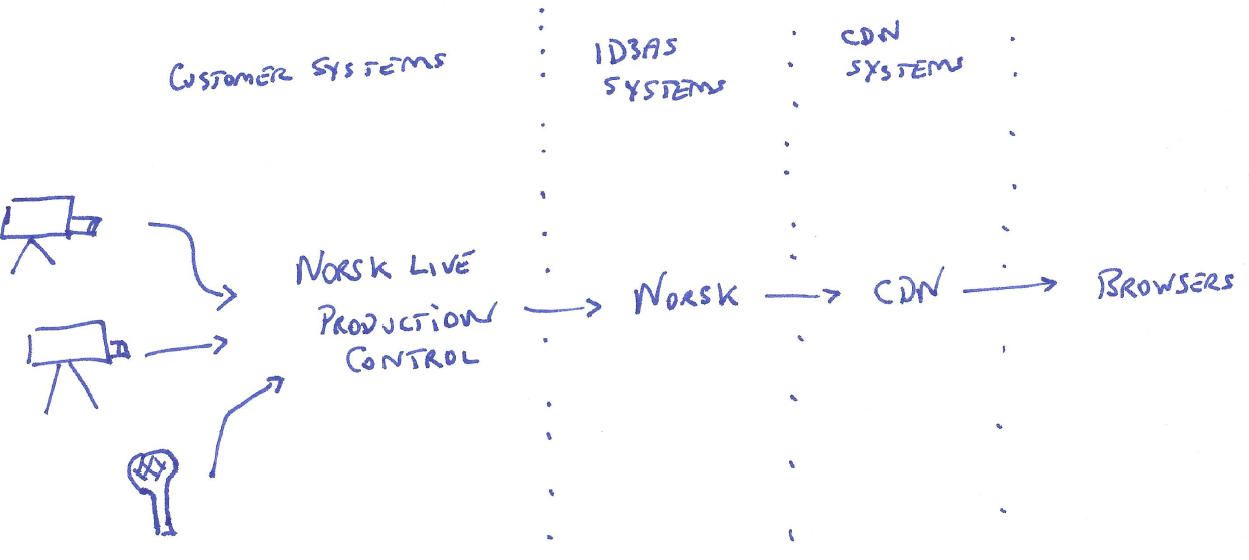 CUSTOMER SYSTEMS
ID3AS
SYSTEMS
CDN
SYSTEMS
NORSK LIVE
PRODUCTION
CONTROL
NORSK
CDN
BROWSERS